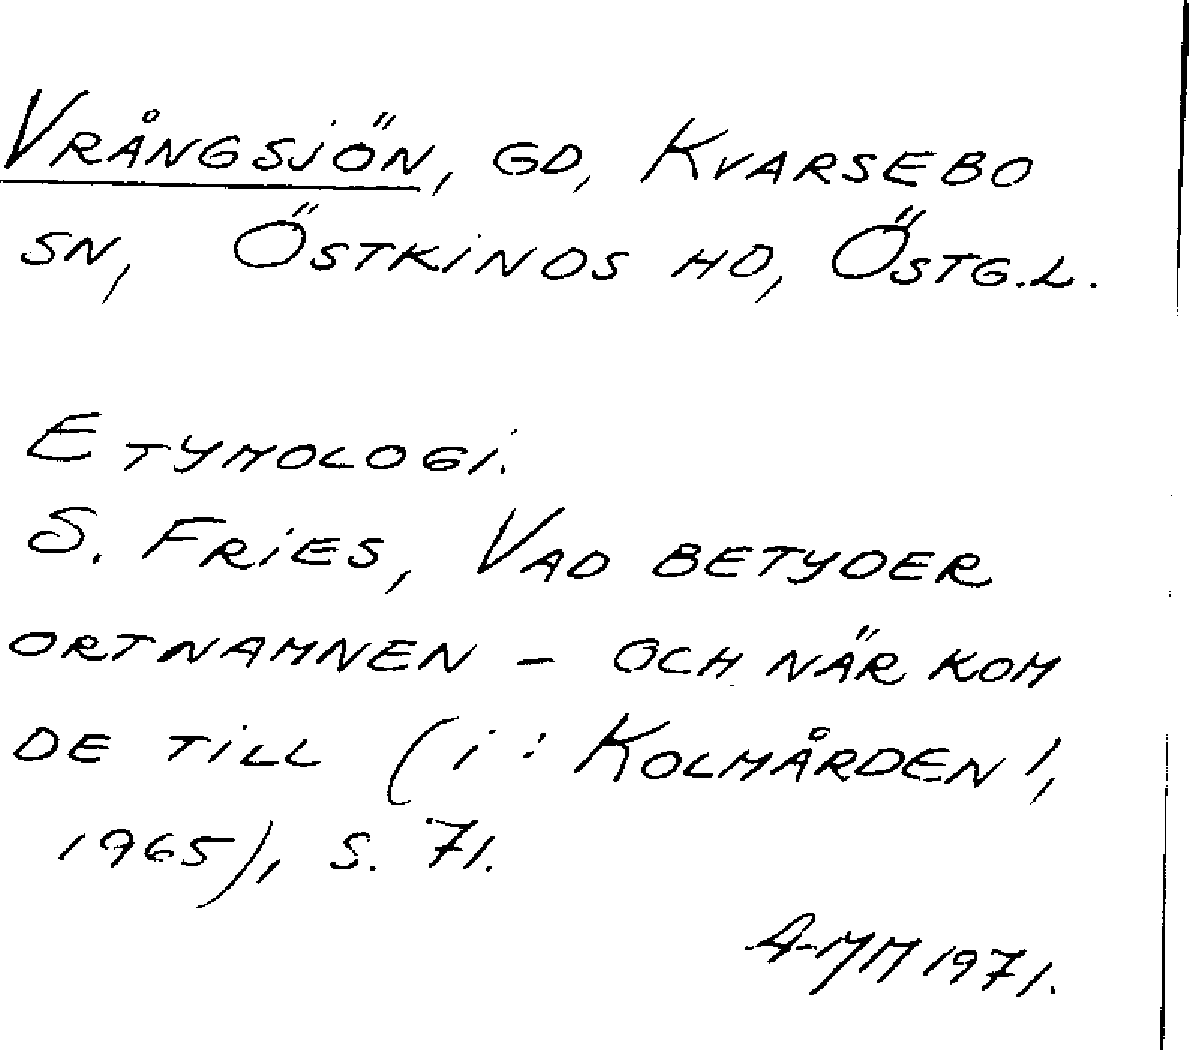 VRÅNGSJÖN, GD, KVARSEBO
SN, ÖSTKINDS HD, ÖSTG.L.
ETYMOLOGI.
S. FRIES, VAD BETYDER
ORTNAMNEN - OCH NÄR KOM
DE TILL (i: KOLMÅRDEN 1,
1965), S. 71.
A-MM 1971.